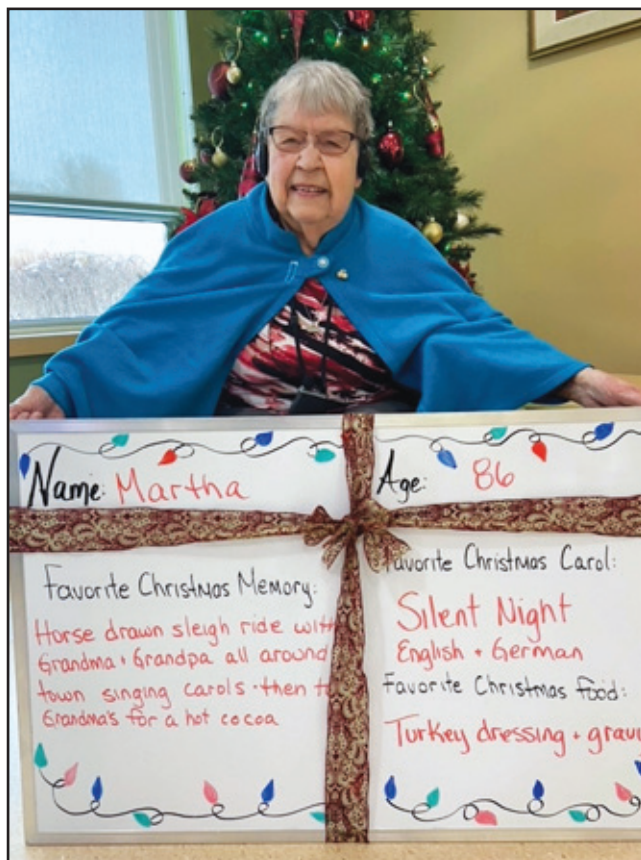 Name: Martha
Age: 86
Favorite Christmas Memory:
Horse drawn sleigh ride with
Grandma + Grandpa all around
town singing carols - then to
Grandma's for a hot cocoa
Favorite Christmas Carol:
Silent Night
English + German
Favorite Christmas Food:
Turkey dressing + gravy